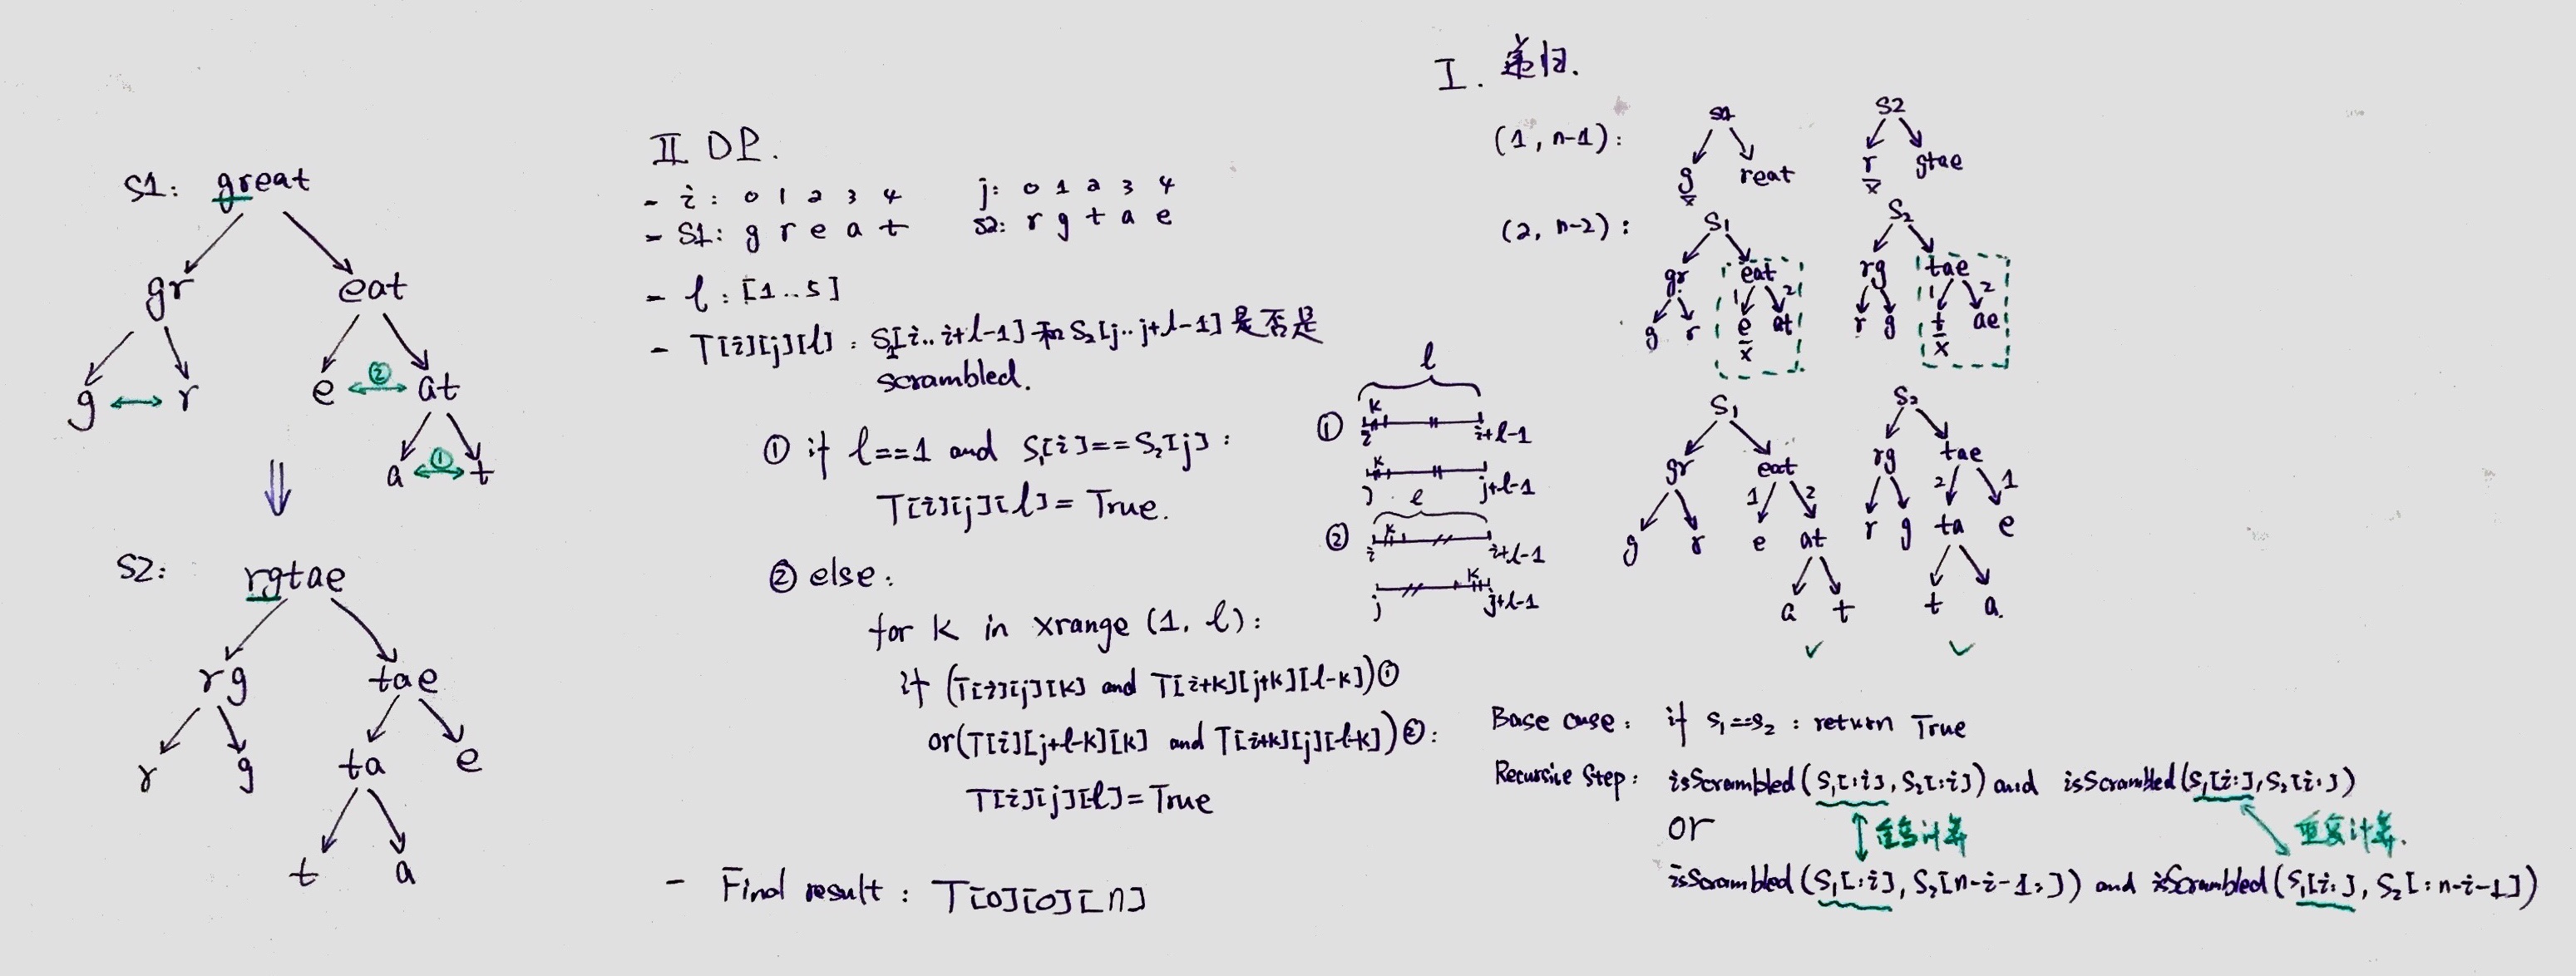 S1: great
gr eat
g ↔ r e ↔② at
a ↔① t
⇓
S2: rgtae
rg tae
r g ta e
t a
II DP.
- i : 0 1 2 3 4 j: 0 1 2 3 4
- S1: g r e a t S2: r g t a e
- l : [1..5]
- T[i][j][l] : S1[i..i+l-1] 和 S2[j..j+l-1] 是否是
scrambled.
① if l==1 and S1[i]==S2[j] :
T[i][j][l] = True.
② else :
for k in xrange (1, l) :
if (T[i][j][k] and T[i+k][j+k][l-k])①
or(T[i][j+l-k][k] and T[i+k][j][l-k])② :
T[i][j][l] = True
- Final result : T[0][0][n]
l
① k
i i+l-1
k
j j+l-1
l
② k
i i+l-1
k
j j+l-1
I. 递归.
(1, n-1) : S1 S2
g reat r gtae
x x
(2, n-2) : S1 S2
gr eat rg tae
1 2 1 2
g r e at r g t ae
x x
S1 S2
gr eat rg tae
1 2 2 1
g r e at r g ta e
a t t a.
✓ ✓
Base case : if S1==S2 : return True
Recursive Step : isScrambled(S1[:i], S2[:i]) and isScrambled(S1[i:], S2[i:])
or 重复计算 重复计算.
isScrambled(S1[:i], S2[n-i-1:]) and isScrambled(S1[i:], S2[:n-i-1])